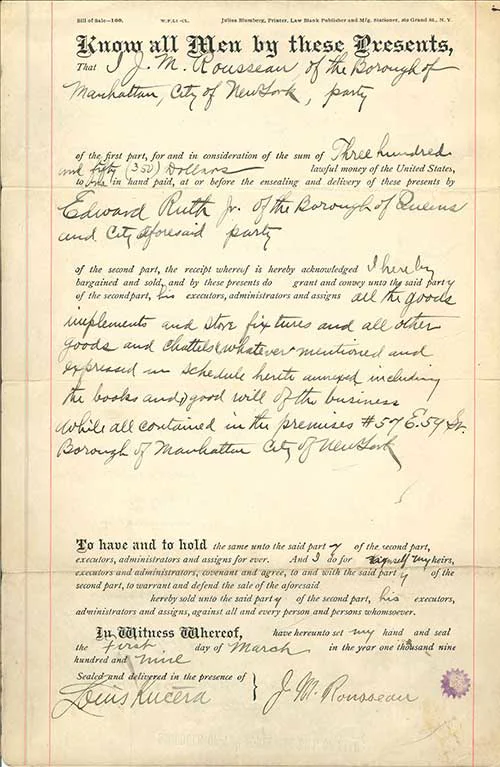 Bill of Sale—100. W.P.Li-Cl. Julius Blumberg, Printer, Law Blank Publisher and M'f'g. Stationer, Grand St., N. Y.
Know all Men by these Presents,
That I J. M. Rousseau, of the Borough of
Manhattan, City of New York, party
of the first part, for and in consideration of the sum of Three hundred
and fifty (350) Dollars lawful money of the United States,
to me in hand paid, at or before the ensealing and delivery of these presents by
Edward Ruth Jr. of the Borough of Queens
and City aforesaid party
of the second part, the receipt whereof is hereby acknowledged I hereby
bargained and sold, and by these presents do grant and convey unto the said party
of the second part, his executors, administrators and assigns all the goods
implements and store fixtures and all other
goods and chattels whatever mentioned and
expressed in schedule hereto annexed including
the books and good will of the business
while all contained in the premises #57 E. 59 St.
Borough of Manhattan City of New York
To have and to hold the same unto the said party of the second part,
executors, administrators and assigns for ever. And I do for myself my heirs,
executors and administrators, covenant and agree, to and with the said party of the
second part, to warrant and defend the sale of the aforesaid
hereby sold unto the said party of the second part, his executors,
administrators and assigns, against all and every person and persons whomsoever.
In Witness Whereof, have hereunto set my hand and seal
the First day of March in the year one thousand nine
hundred and nine
Sealed and delivered in the presence of
Louis Kucera J. M. Rousseau